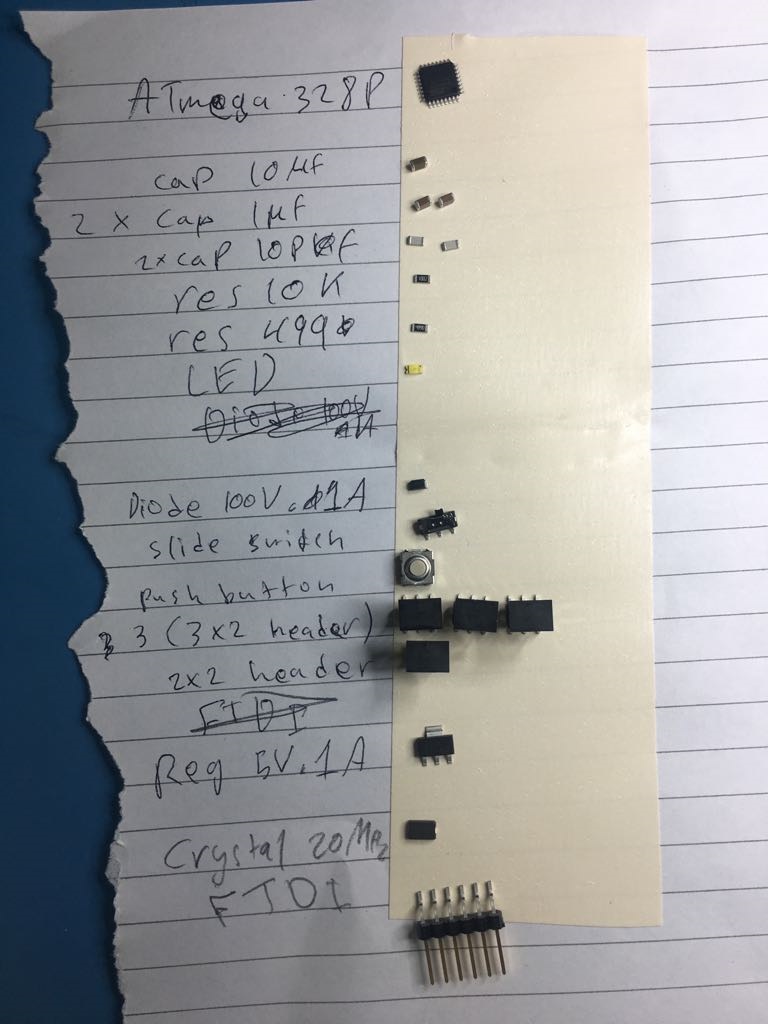 ATmega 328P
cap 10 µf
2 x cap 1µf
2x cap 10P f
res 10K
res 499
LED
Diode 100V 1A
Diode 100V. 1A
slide switch
push button
3 (3x2 header)
2x2 header
FTDI
Reg 5V. 1A
Crystal 20 MHz
FTDI